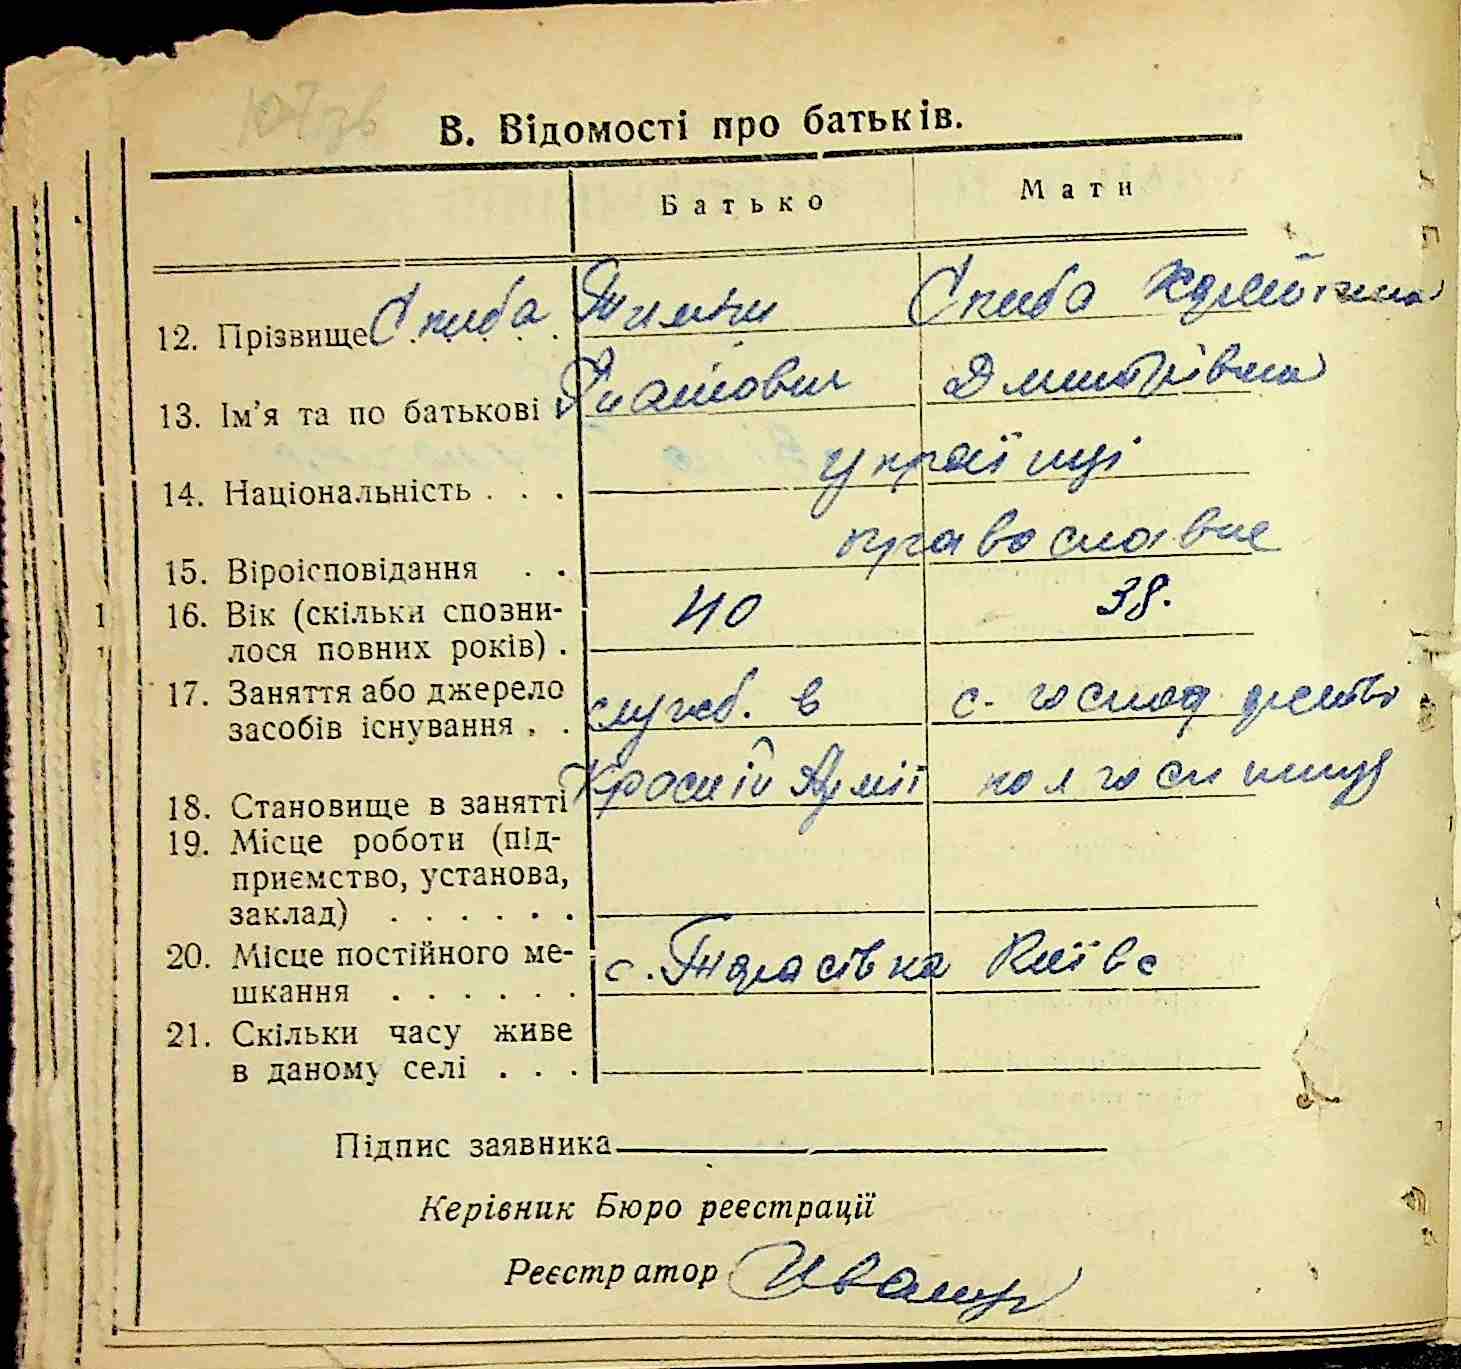 В. Відомості про батьків.
Батько Мати
12. Прізвище Скиба Скиба
13. Ім'я та по батькові Дмитрівна
14. Національність . . . українці
15. Віроісповідання . . православне
16. Вік (скільки сповни- 40 38.
лося повних років) .
17. Заняття або джерело служб. в с-господарство
засобів існування . .
18. Становище в занятті Красній Армії
19. Місце роботи (під-
приємство, установа,
заклад) . . . . . .
20. Місце постійного ме- с. Тарасівка Київс
шкання . . . . . .
21. Скільки часу живе
в даному селі . . .
Підпис заявника
Керівник Бюро реєстрації
Реєстратор